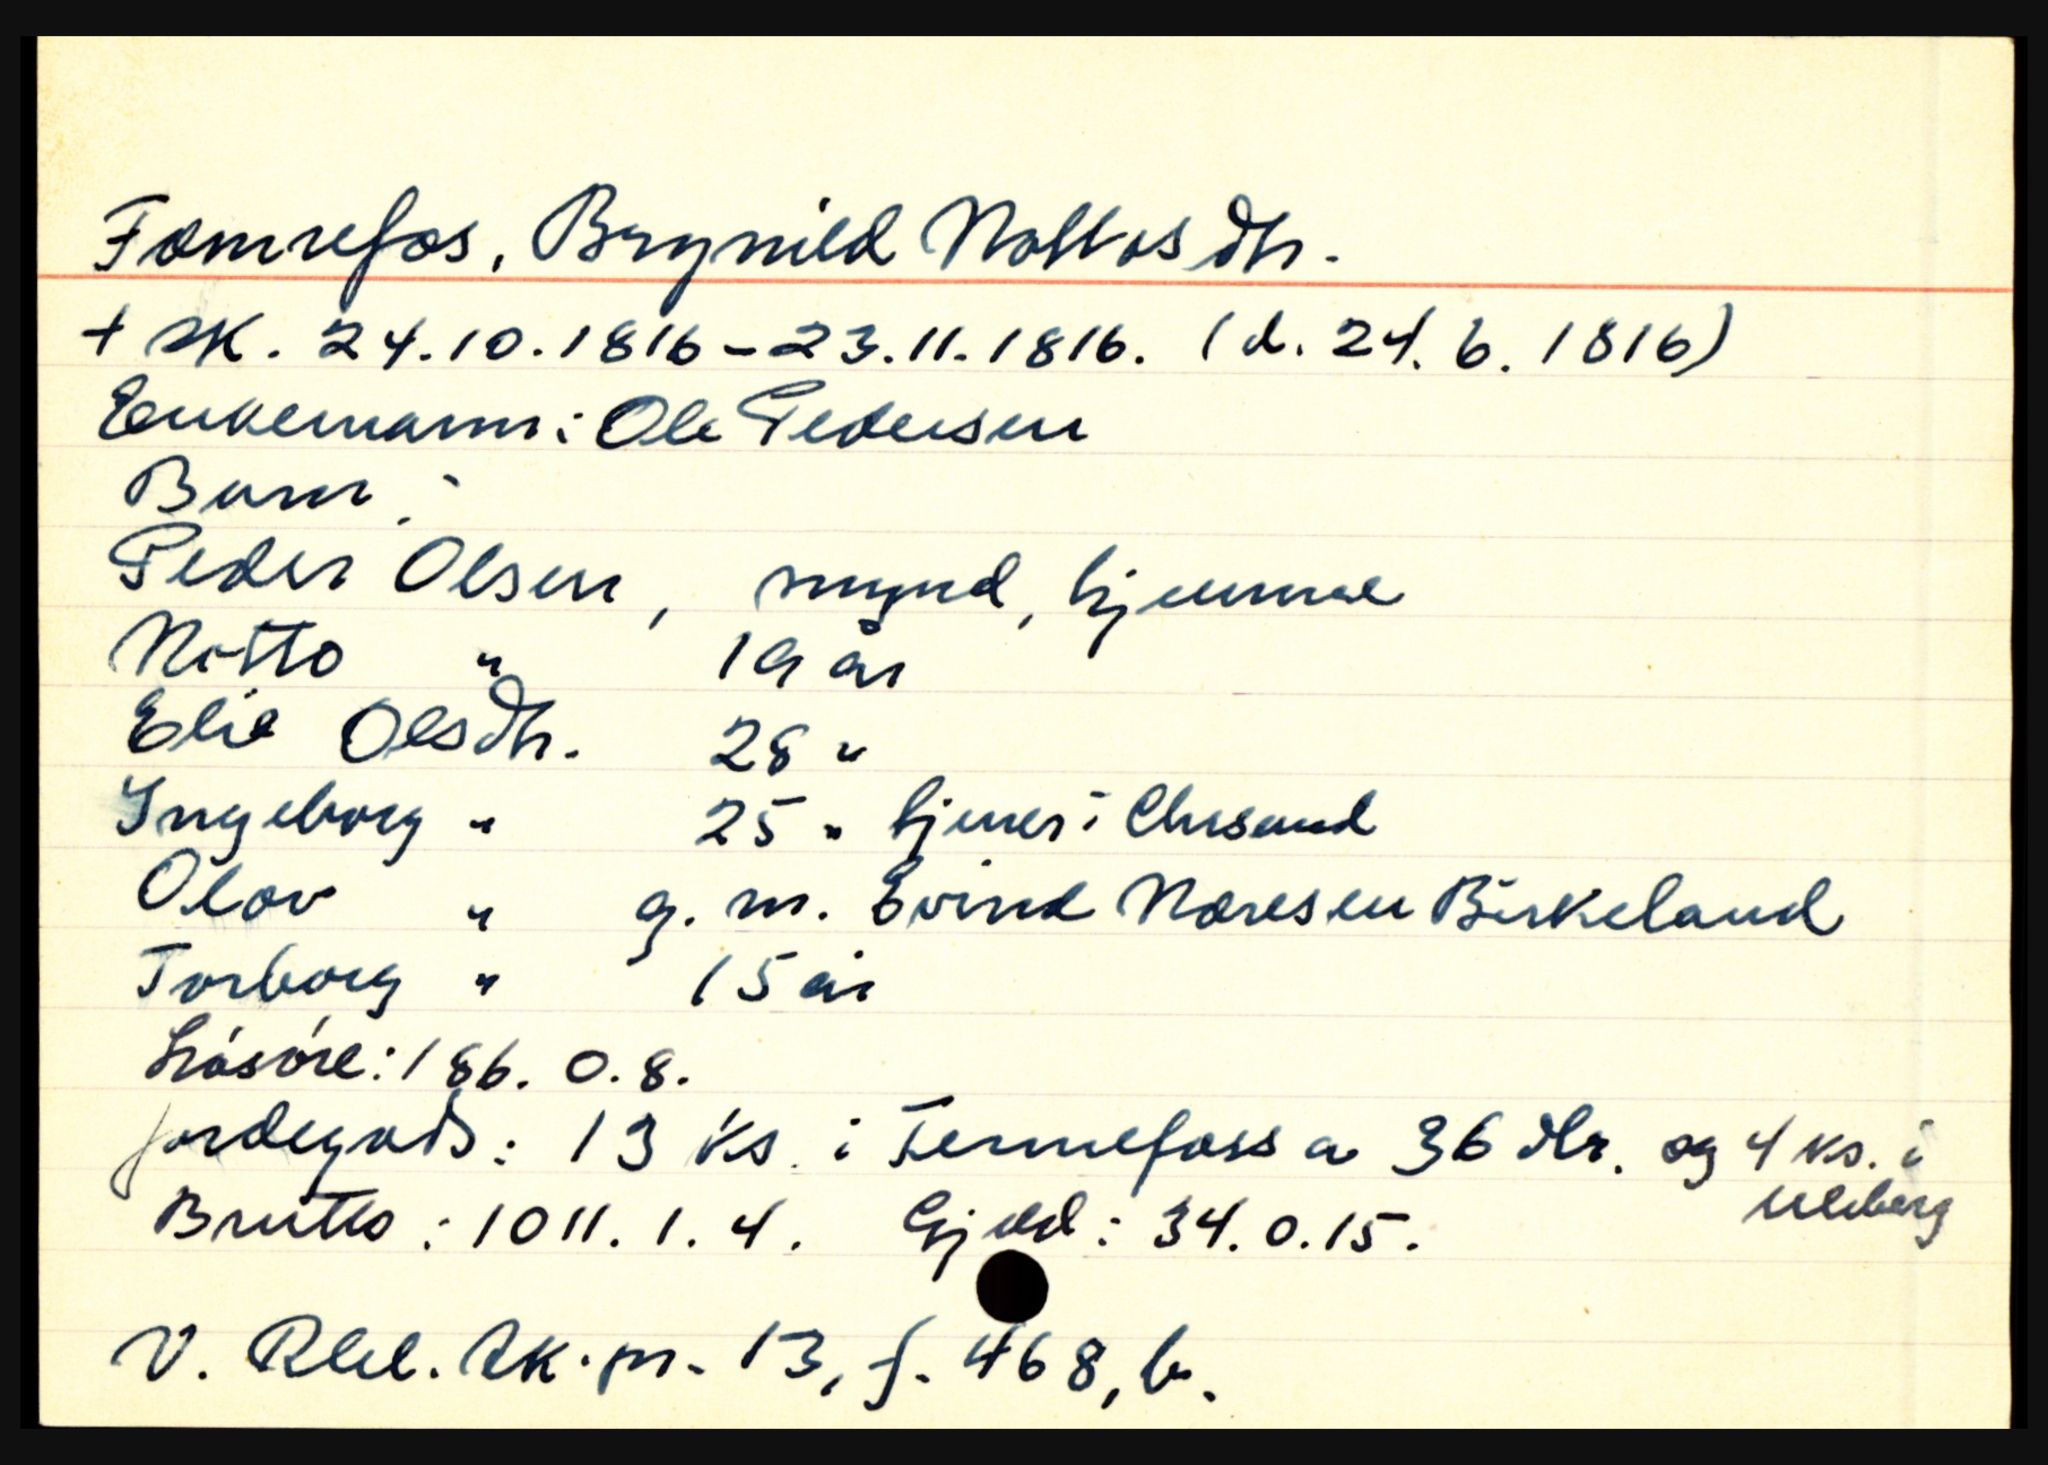 Fomrefos, Brynild Nottosdtr.
+ sk. 24.10.1816-23.11.1816. (d. 24.6.1816)
Enkemann: Ole Pedersen
Barn:
Peder Olsen, mynd, hjemme
Notto " 19 år
Elie Olsdtr. 28 "
Ingeborg " 25 " tjener i Chrsand
Olov " g. m. Evind Noresen Birkeland
Torborg " 15 år
Lösöre: 186. 0. 8.
Jordegods: 13 ks. i Fennefoss a 36 dlr. og 4 ks. i
Uleberg
Brutto: 1011. 1. 4. Gjeld: 34. 0. 15.
V. Rbl. sk. pr. 13, f. 468, b.